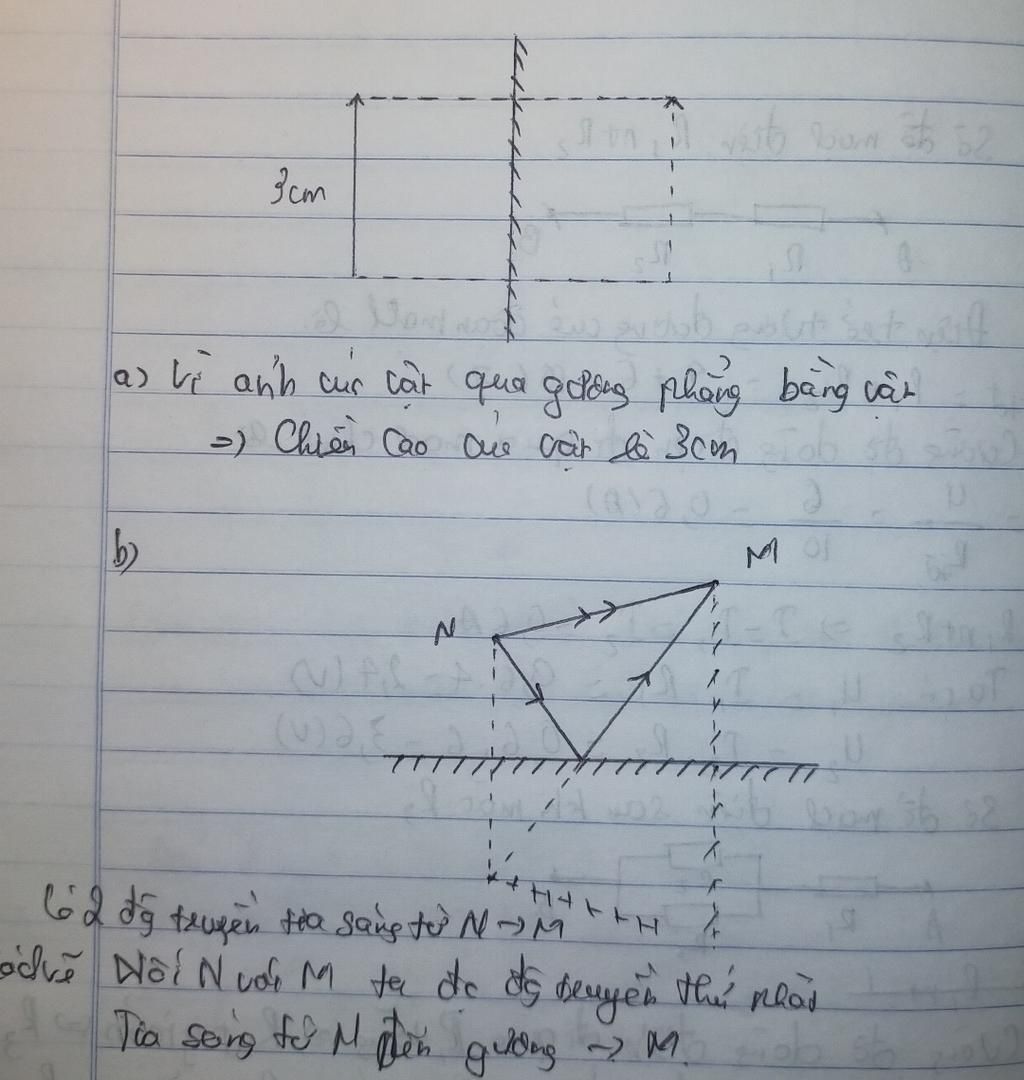 3cm
a) Vì ảnh của vật qua gương phẳng bằng vật
=> Chiều cao của vật là 3cm
b)
M
N
Có 2 đg truyền tia sáng từ N -> M
Nối N với M ta đc đg truyền thứ nhất
Tia sáng từ N đến gương -> M